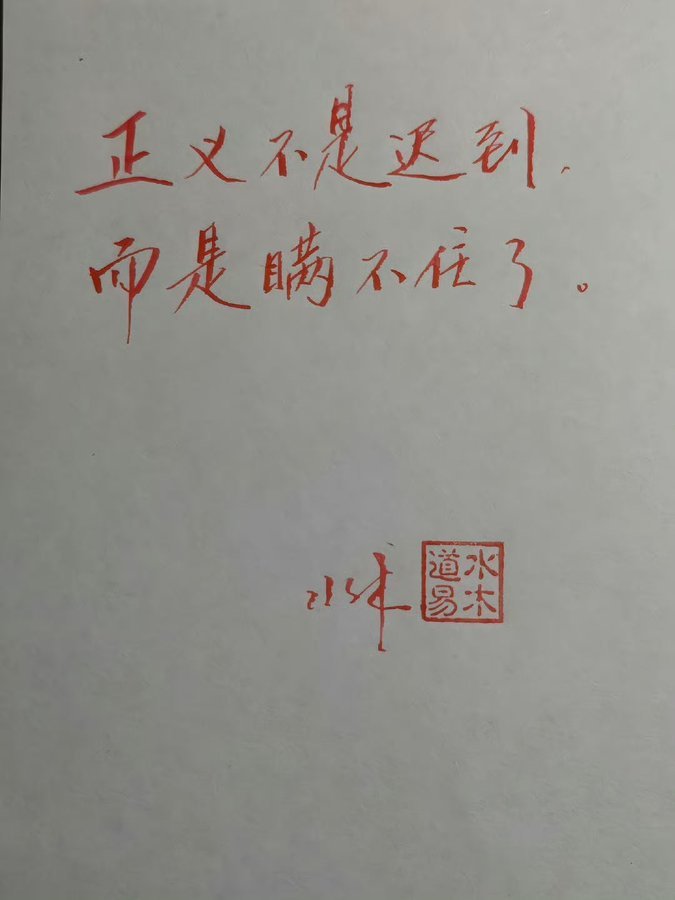 正义不是迟到，
而是瞒不住了。
水木
水木道易